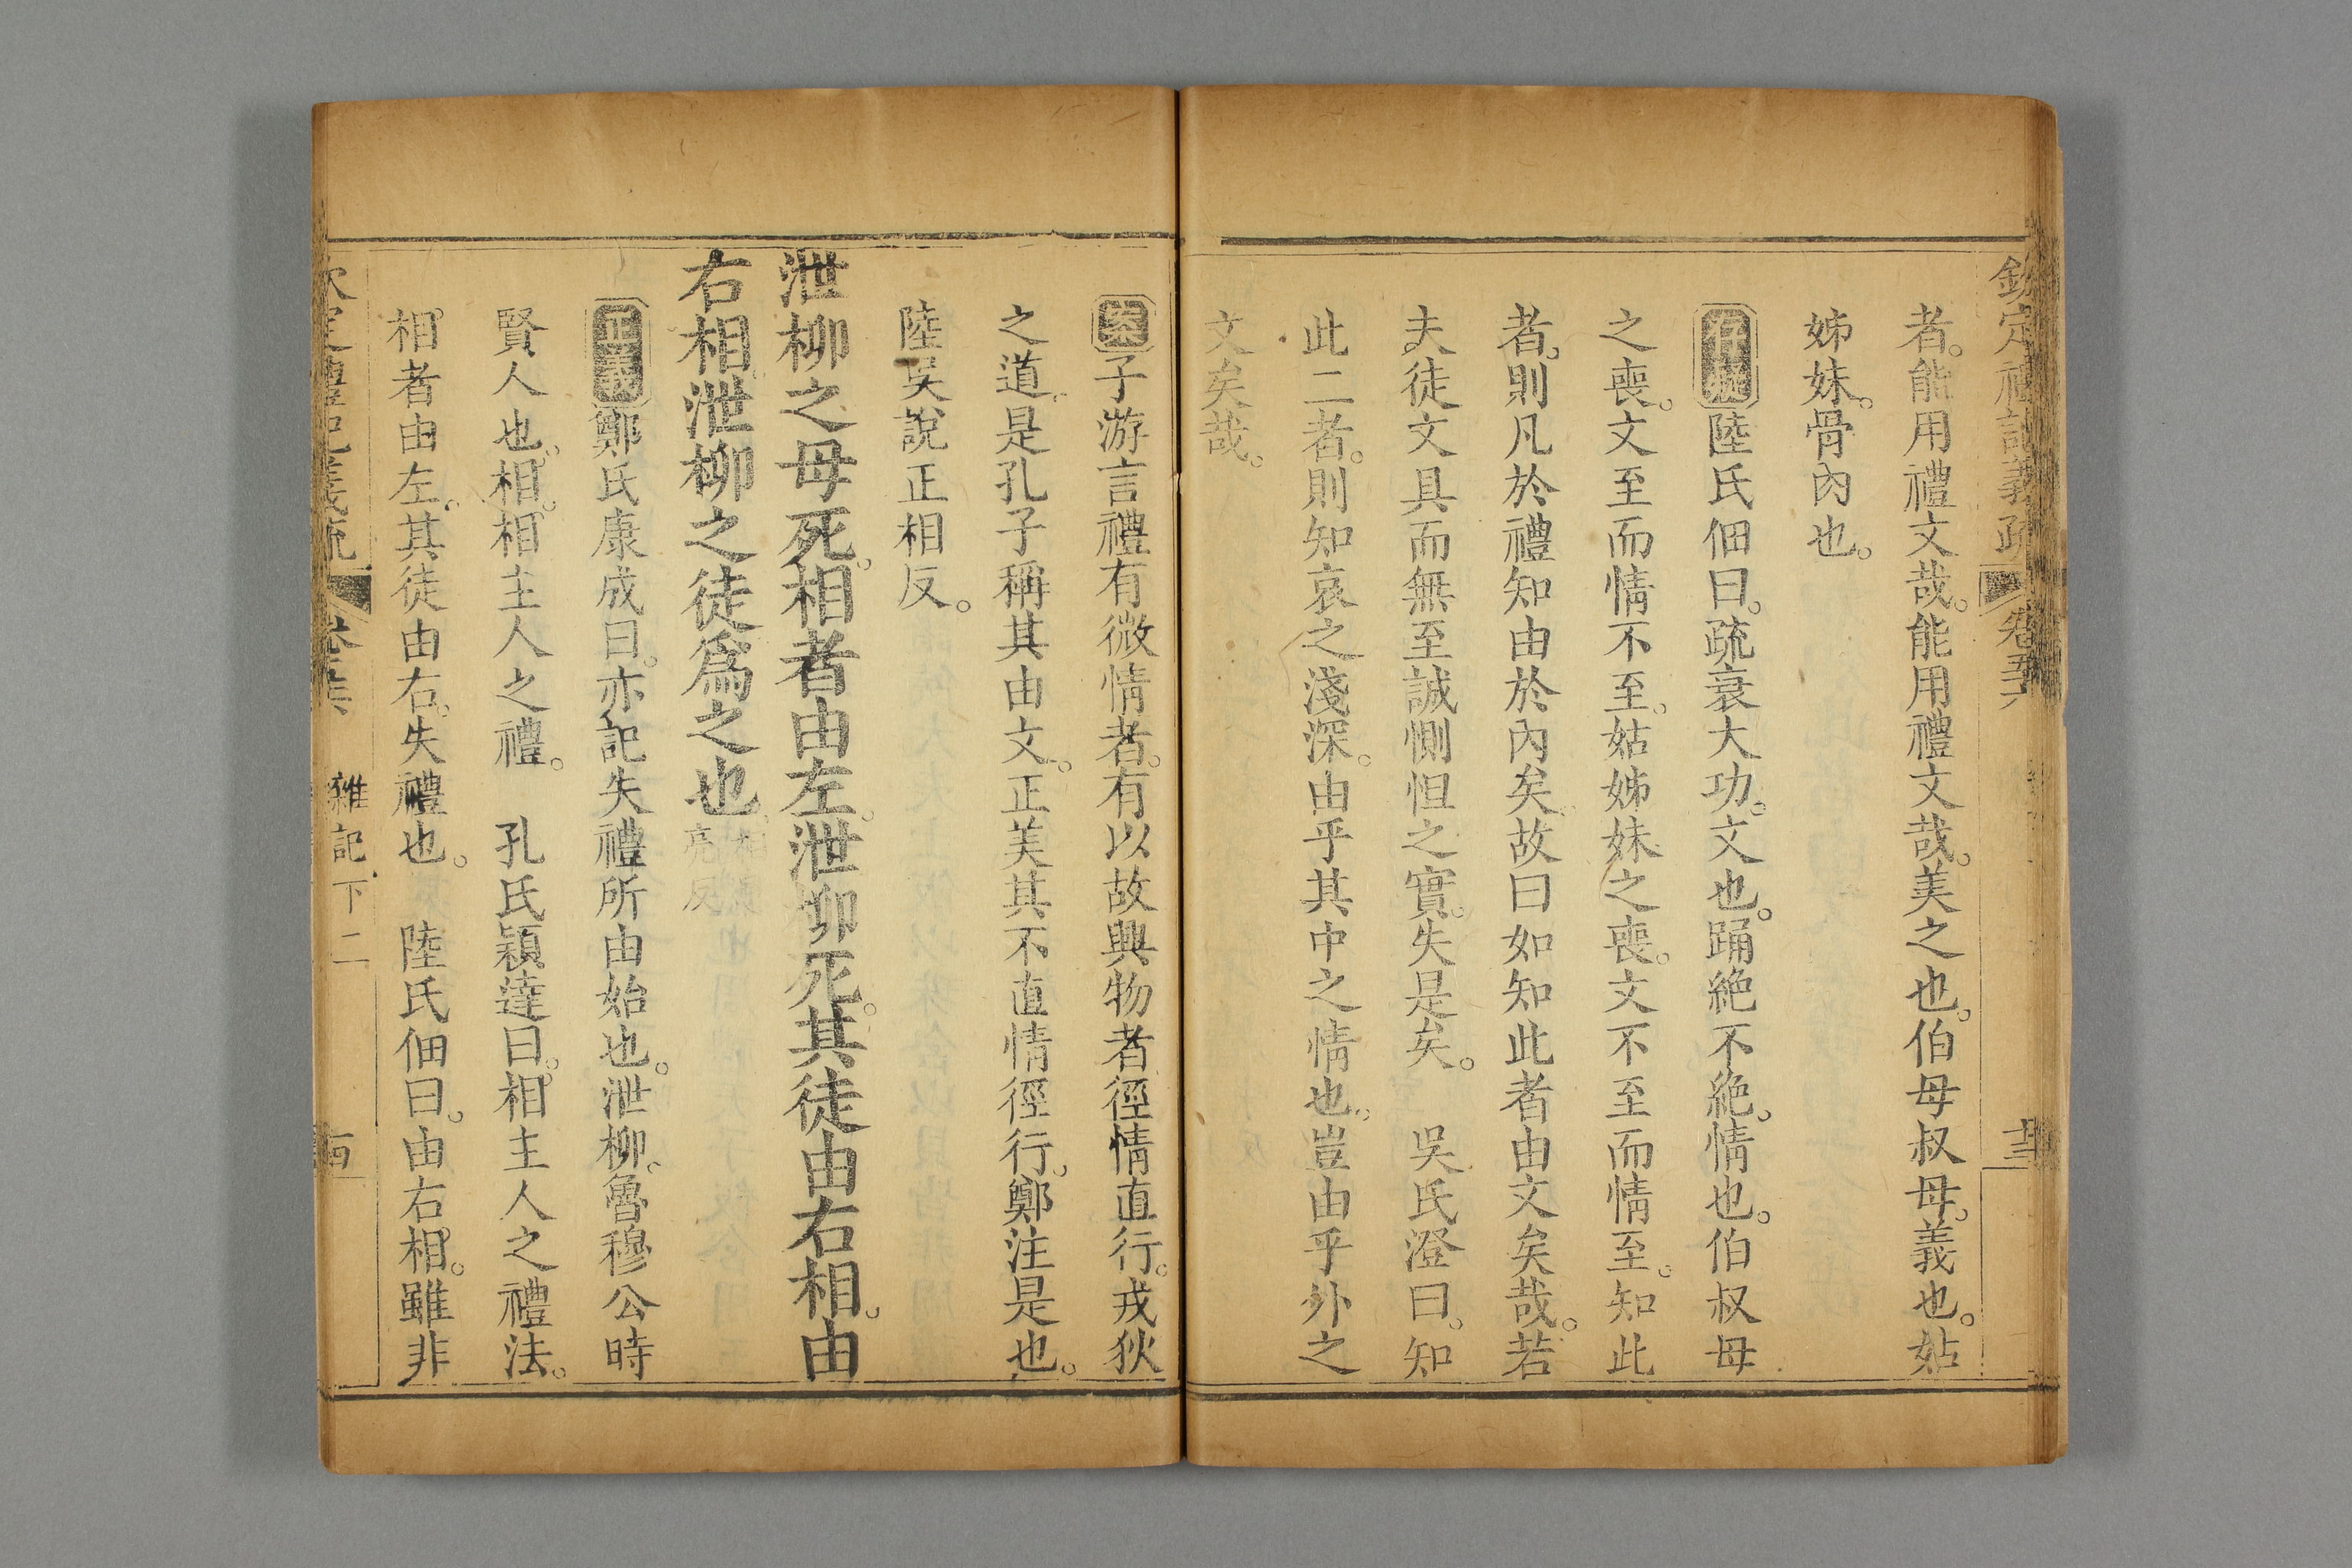 欽定禮記義疏 卷五十六
者。能用禮文哉。能用禮文哉。美之也。伯母叔母。義也。姑
姊妹。骨內也。
存疑陸氏佃曰。疏衰大功。文也。踊絕不絕。情也。伯叔母
之喪。文至而情不至。姑姊妹之喪。文不至而情至。知此
者。則凡於禮知由於內矣。故曰如知此者由文矣哉。若
夫徒文具而無至誠惻怛之實。失是矣。 吳氏澄曰。知
此二者。則知哀之淺深。由乎其中之情也。豈由乎外之
文矣哉。
案子游言禮有微情者。有以故興物者徑情直行。戎狄
之道。是孔子稱其由文。正美其不直情徑行。鄭注是也。
陸吳說正相反。
泄柳之母死。相者由左。泄柳死。其徒由右相。由
右相。泄柳之徒爲之也。相息亮反
正義鄭氏康成曰。亦記失禮所由始也。泄柳。魯穆公時
賢人也。相。相主人之禮。 孔氏穎達曰。相主人之禮法。
相者由左。其徒由右。失禮也。 陸氏佃曰。由右相。雖非
禮記義疏 雜記下二